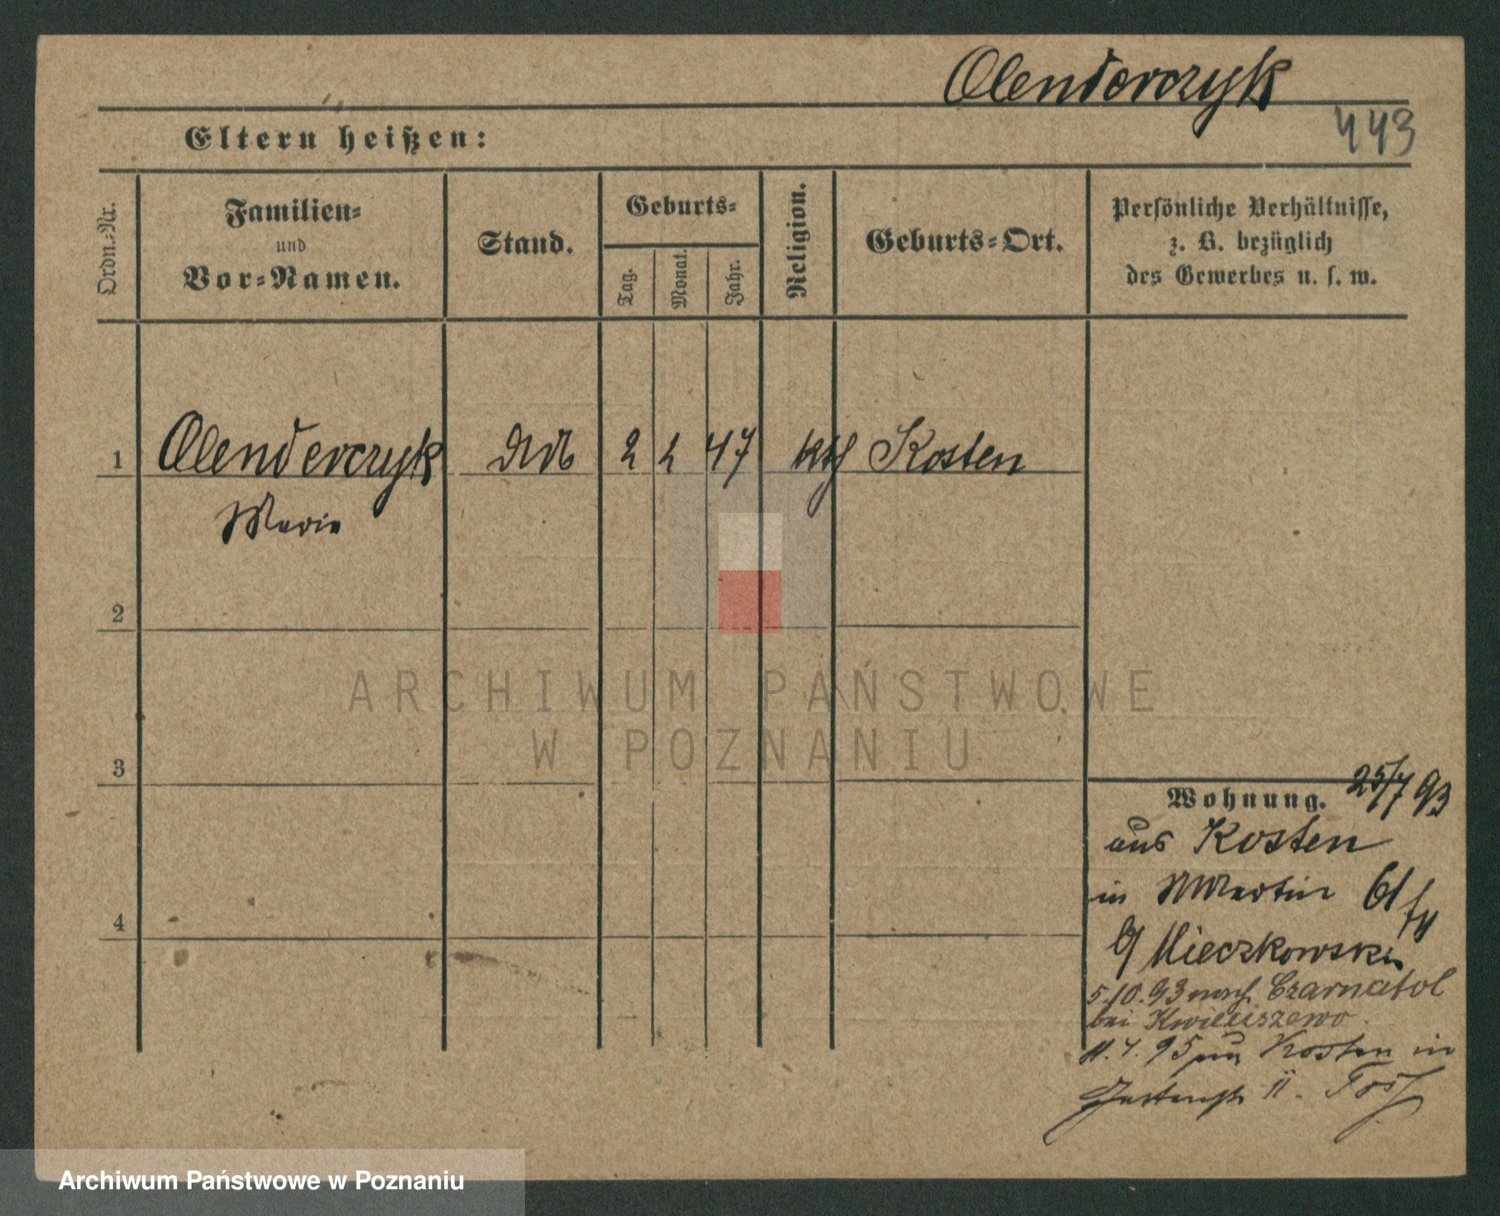 Olenderczyk
443
Eltern heißen:
Ordn.-Nr.
Familien-
und
Vor-Namen.
Stand.
Geburts-
Tag.
Monat.
Jahr.
Religion.
Geburts-Ort.
Persönliche Verhältnisse,
z. B. bezüglich
des Gewerbes u. s. w.
1 Olenderczyk 2 2 47 kth Kosten
Marie
2
3
4
ARCHIWUM PAŃSTWOWE
W POZNANIU
Wohnung. 25/7 93
aus Kosten
in Martin 61
Mieczkowski
5.10.93 nach Czarnatol
bei Kwieciszewo
11.4.95 aus Kosten in
Gartenstr 11.
Archiwum Państwowe w Poznaniu